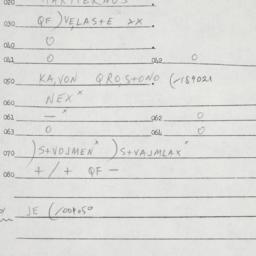 030 QF )VELAS+E xx.
040 0
041 0 042 0
050 KA,VON QRO,S+ONO (/184021
060 NEX x
061 — x 062 0
063 0 064 0
070 )S+VOJMEN x )S+VAJMLAX x
080 + / + QF —
JE (/004050